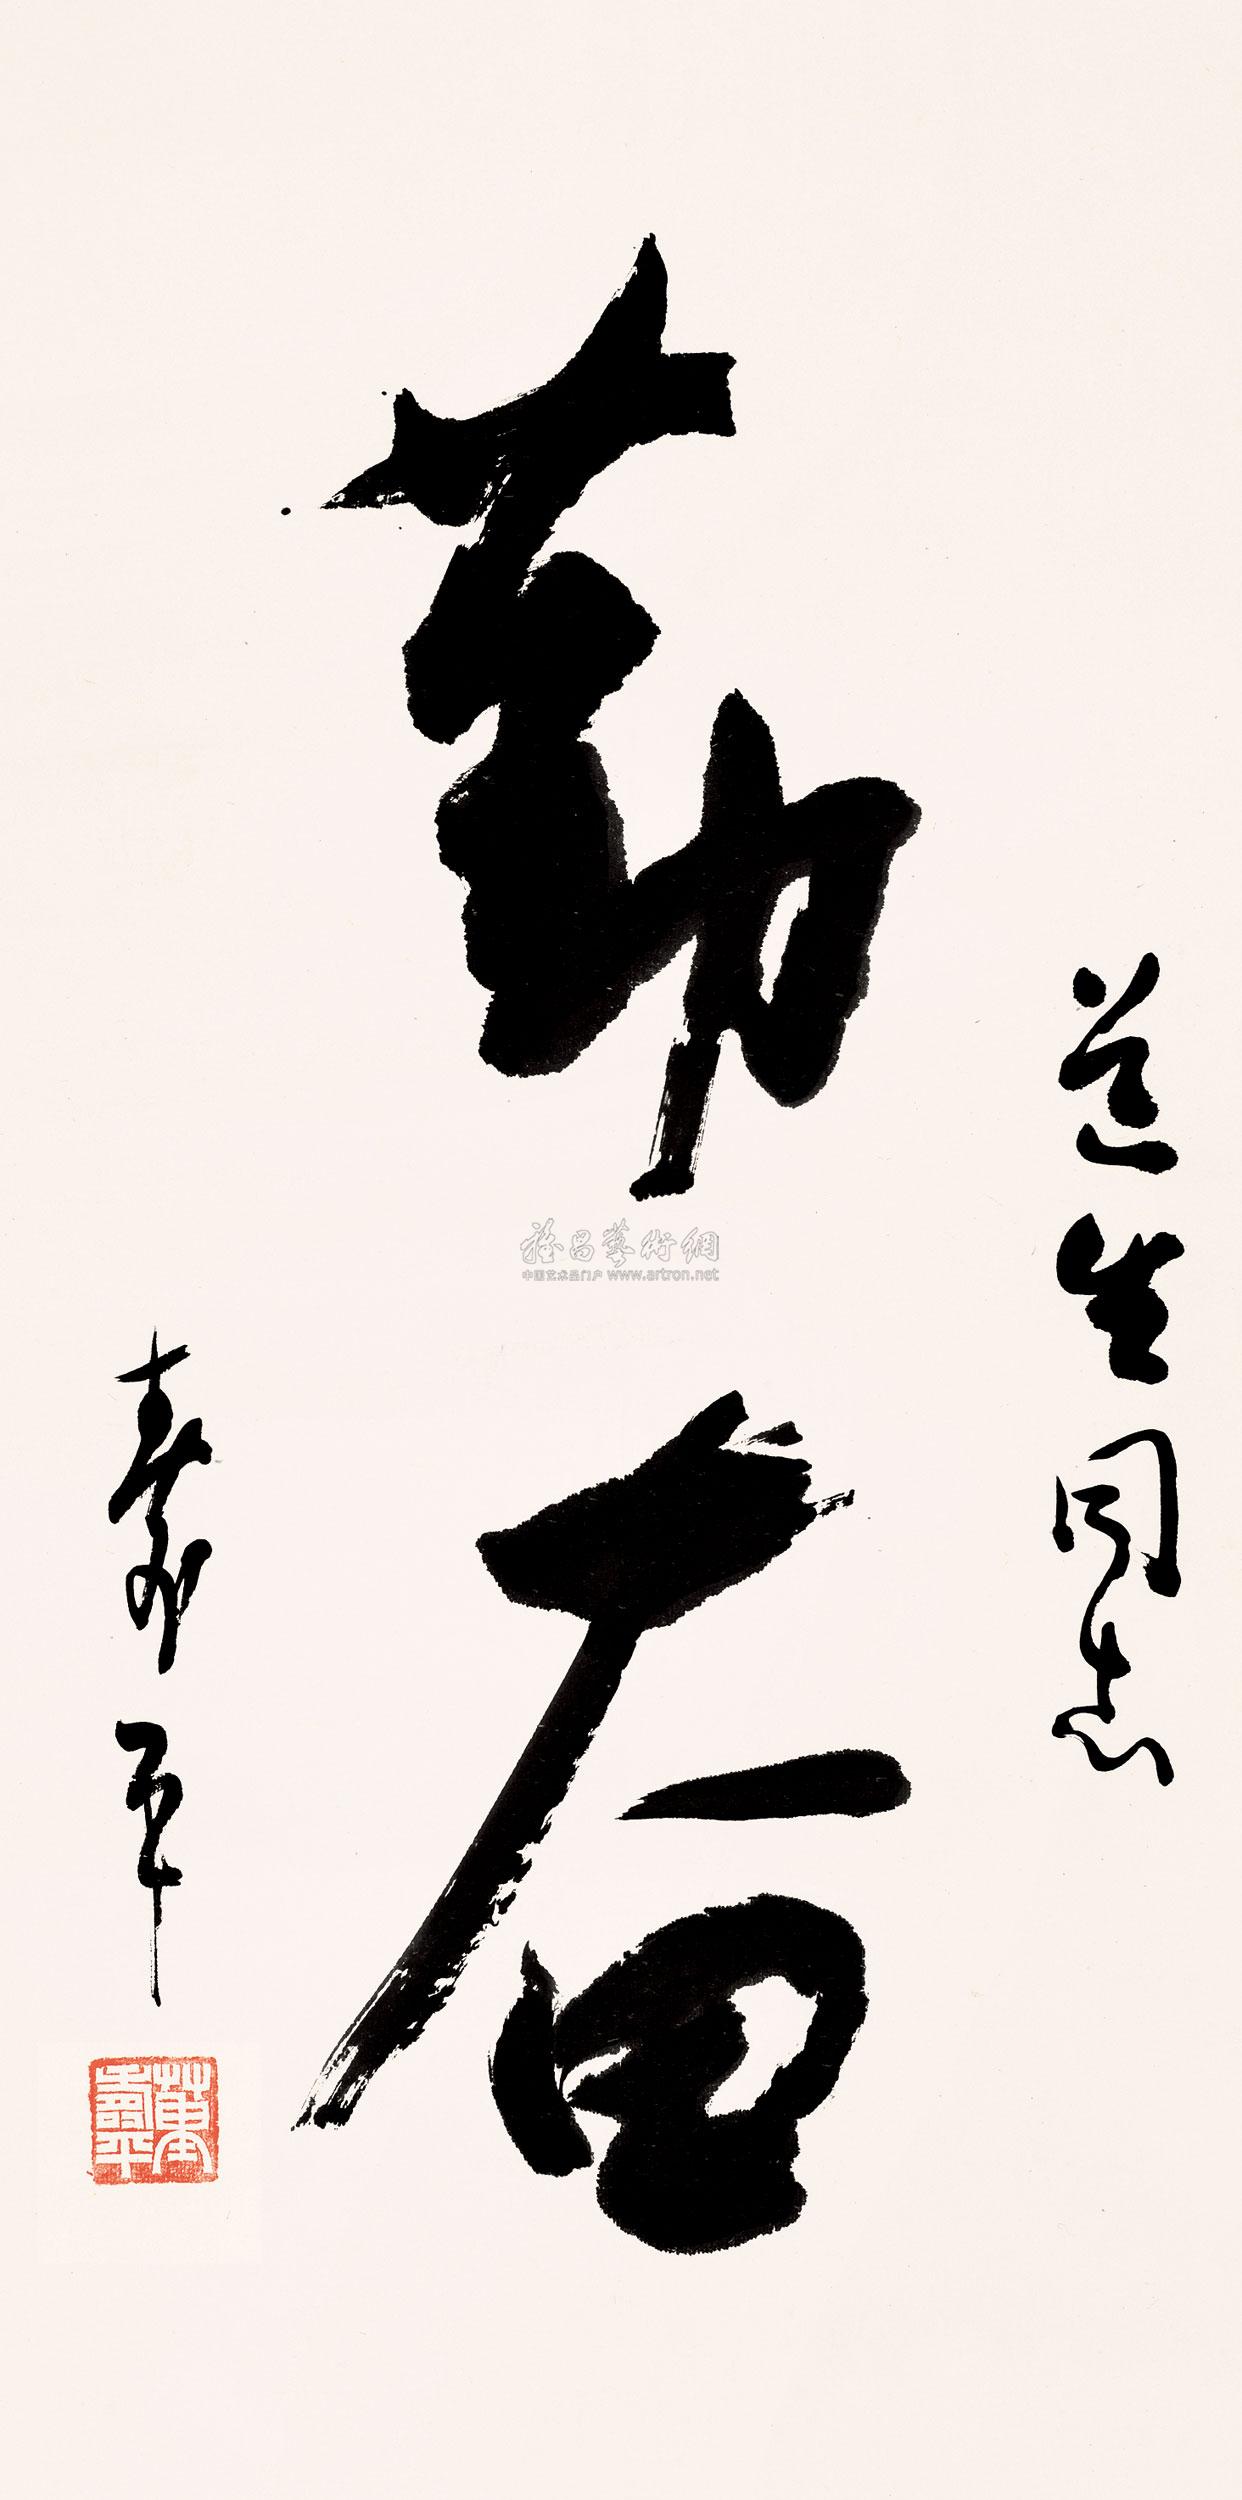 道生同志
勤奋
寿平
董寿平
雅昌艺术网
中国艺术品门户 www.artron.net